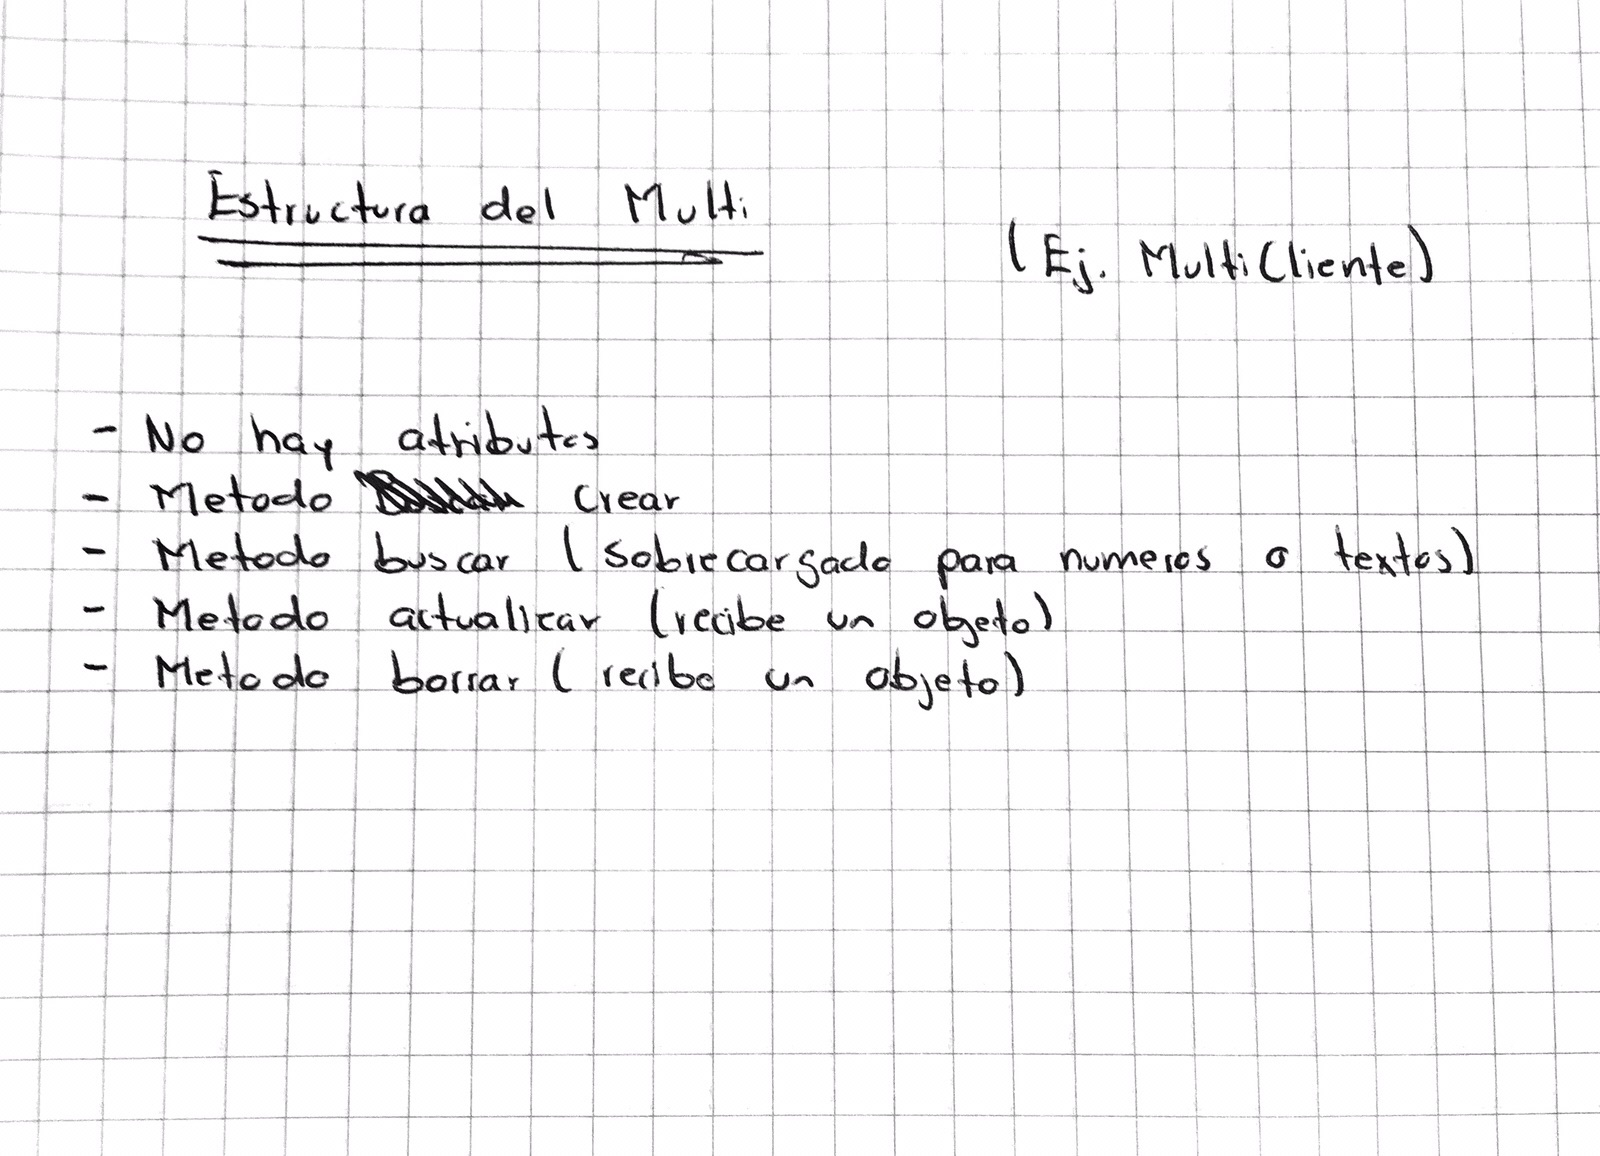 Estructura del Multi
(Ej. MultiCliente)
- No hay atributos
- Metodo Crear
- Metodo buscar (sobrecargado para numeros o textos)
- Metodo actualizar (recibe un objeto)
- Metodo borrar (recibe un objeto)